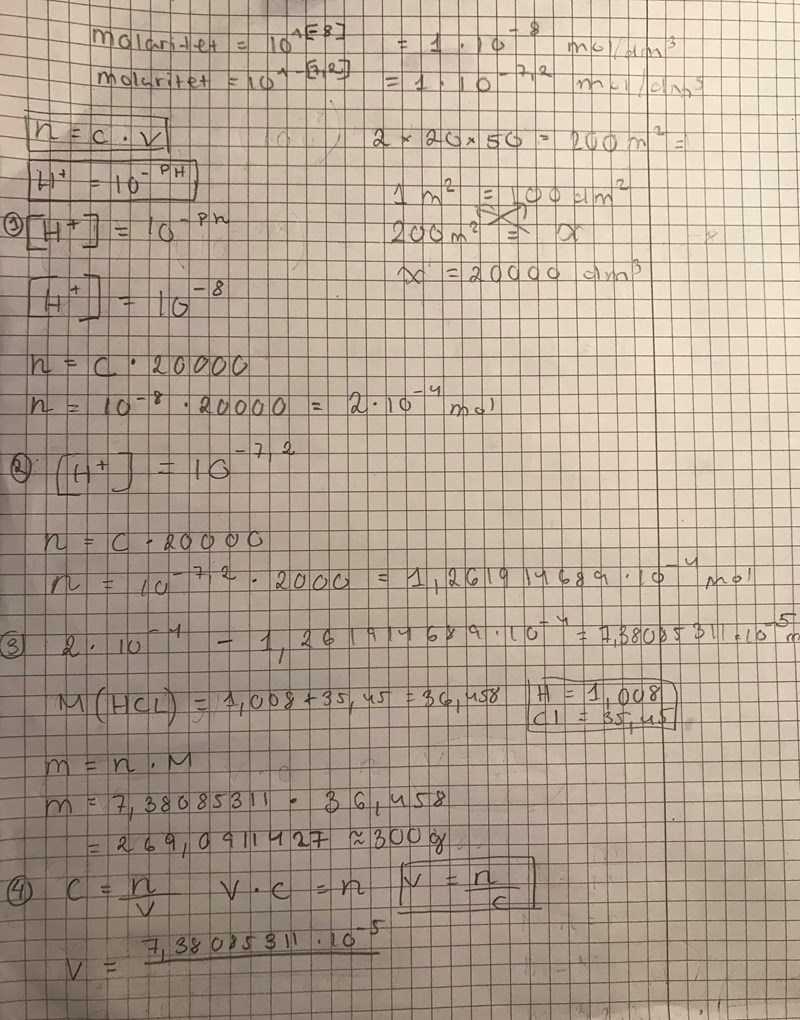 molaritet = 10^1[-8] = 1 · 10^-8 mol/dm³
molaritet = 10^1-[7,2] = 1 · 10^-7,2 mol/dm³
n = c · V
2 × 20 × 50 = 200 m² =
H⁺ = 10^-PH
1 m² = 100 dm²
① [H⁺] = 10^-PH
200 m² = x
x = 20000 dm³
[H⁺] = 10^-8
n = c · 20000
n = 10^-8 · 20000 = 2 · 10^-4 mol
② [H⁺] = 10^-7,2
n = c · 20000
n = 10^-7,2 · 2000 = 1,261914689 · 10^-4 mol
③ 2 · 10^-4 - 1,261914689 · 10^-4 = 7,38085311 · 10^-5 m
M(HCl) = 1,008 + 35,45 = 36,458
H = 1,008
Cl = 35,45
m = n · M
m = 7,38085311 · 36,458
= 269,0911427 ≈ 300 g
④ C = n/V V · C = n V = n/C
V = 7,38085311 · 10^-5